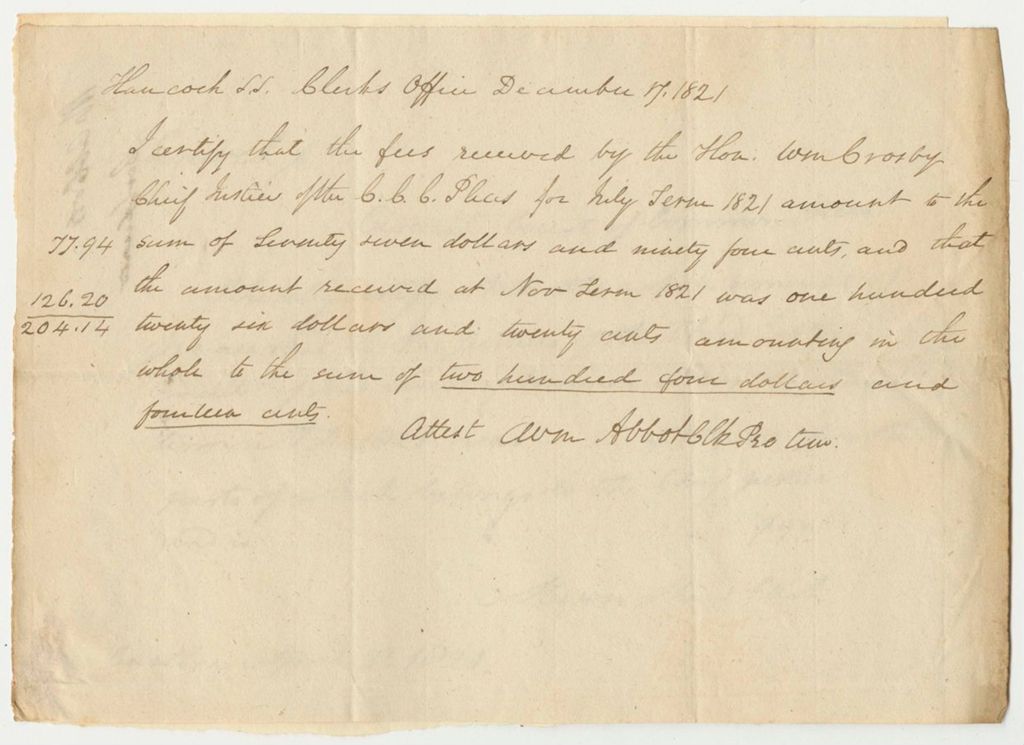 Hancock SS. Clerks Office December 17. 1821
I certify that the fees received by the Hon. Wm Crosby
Cheif Justice of the C.C.C. Pleas for July Term 1821 amount to the
77.94 sum of Seventy seven dollars and ninety four cents, and that
the amount received at Nov Term 1821 was one hundred
126.20
204.14 twenty six dollars and twenty cents amounting in the
whole to the sum of two hundred four dollars and
fourteen cents.
Attest Wm Abbot Clk Pro tem.